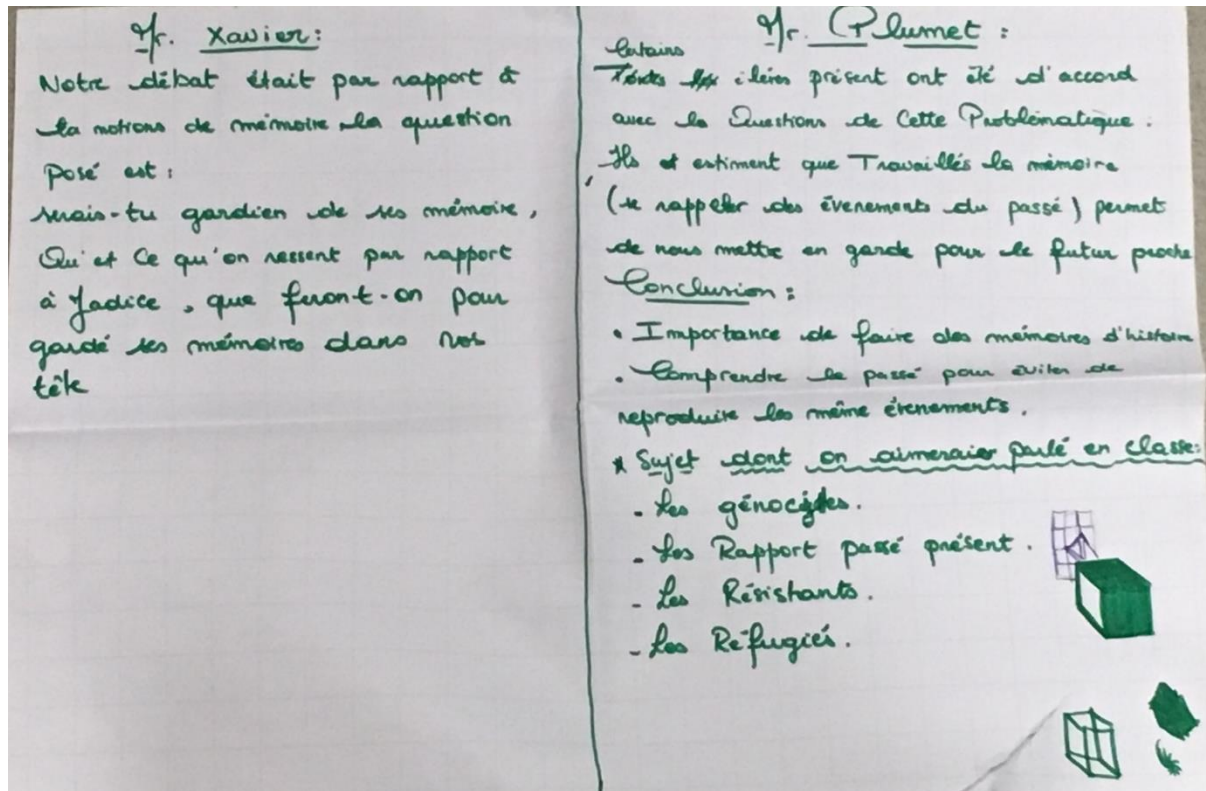 Mr. Xavier :
Notre débat était par rapport à
la notions de mémoire la question
posé est :
serais-tu gardien de ses mémoire,
Qu'et Ce qu'on ressent par rapport
à Jadice, que feront-on pour
gardé ses mémoires dans nos
tête
Mr. Plumet :
Certains
élèves présent ont été d'accord
avec la Questions de Cette Problématique.
Ils estiment que Travaillés la mémoire
(se rappeler des évenements du passé) permet
de nous mettre en garde pour le futur proche
Conclusion :
• Importance de faire des mémoires d'histoire
• Comprendre le passé pour éviter de
reproduire les même évenements.
* Sujet dont on aimeraier parlé en classe:
- Les génocides.
- Les Rapport passé présent.
- Les Résistants.
- Les Réfugiés.